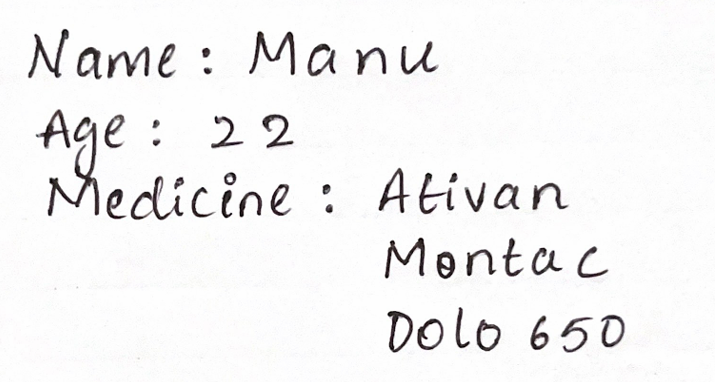 Name : Manu
Age : 22
Medicine : Ativan
Montac
Dolo 650